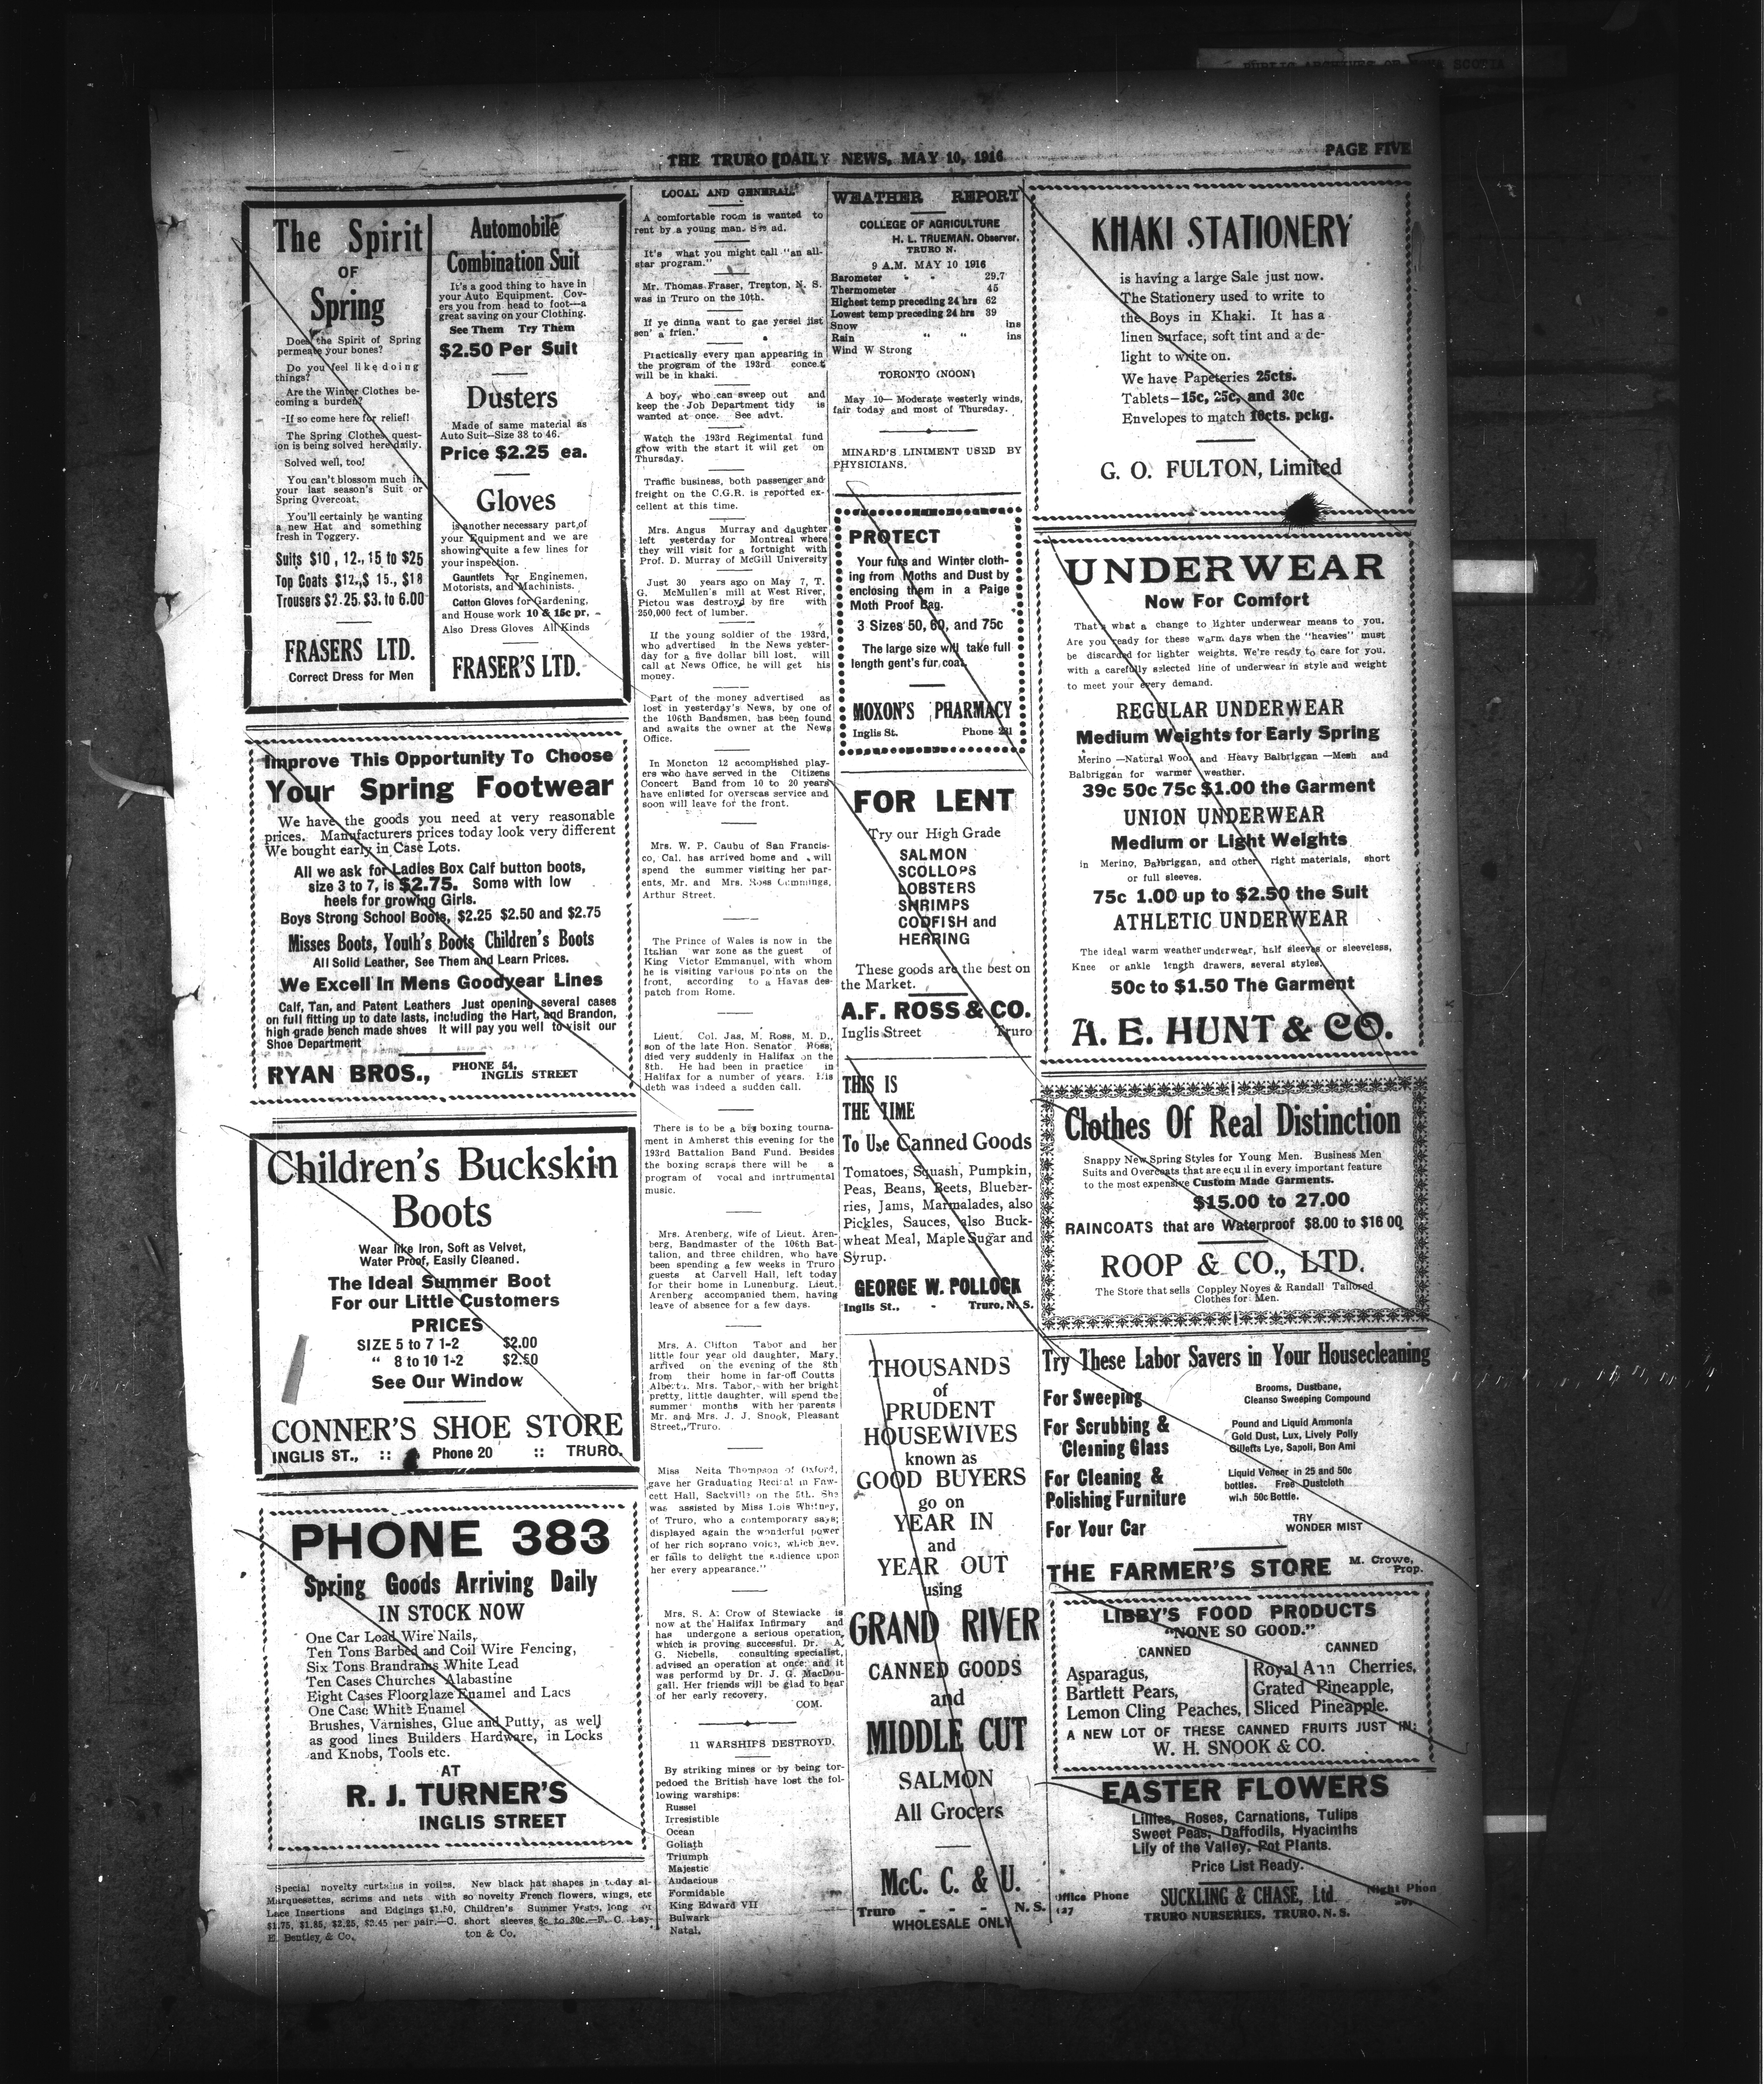 PUBLIC ARCHIVES OF NOVA SCOTIA
THE TRURO DAILY NEWS, MAY 10, 1916
PAGE FIVE
The Spirit
OF
Spring
Does the Spirit of Spring
permeate your bones?
Do you feel like doing
things?
Are the Winter Clothes be-
coming a burden?
If so come here for relief!
The Spring Clothes quest-
ion is being solved here daily.
Solved well, too!
You can't blossom much in
your last season's Suit or
Spring Overcoat.
You'll certainly be wanting
a new Hat and something
fresh in Toggery.
Suits $10, 12., 15 to $25
Top Coats $12.,$ 15., $18
Trousers $2.25. $3. to 6.00
FRASERS LTD.
Correct Dress for Men
Automobile
Combination Suit
It's a good thing to have in
your Auto Equipment. Cov-
ers you from head to foot—a
great saving on your Clothing.
See Them Try Them
$2.50 Per Suit
Dusters
Made of same material as
Auto Suit—Size 38 to 46.
Price $2.25 ea.
Gloves
is another necessary part of
your Equipment and we are
showing quite a few lines for
your inspection.
Gauntlets for Enginemen,
Motorists, and Machinists.
Cotton Gloves for Gardening,
and House work 10 & 15c pr.
Also Dress Gloves All Kinds
FRASER'S LTD.
Improve This Opportunity To Choose
Your Spring Footwear
We have the goods you need at very reasonable
prices. Manufacturers prices today look very different
We bought early in Case Lots.
All we ask for Ladies Box Calf button boots,
size 3 to 7, is $2.75. Some with low
heels for growing Girls.
Boys Strong School Boots, $2.25 $2.50 and $2.75
Misses Boots, Youth's Boots Children's Boots
All Solid Leather, See Them and Learn Prices.
We Excell In Mens Goodyear Lines
Calf, Tan, and Patent Leathers Just opening several cases
on full fitting up to date lasts, including the Hart, and Brandon,
high grade bench made shoes It will pay you well to visit our
Shoe Department
RYAN BROS., PHONE 54,
INGLIS STREET
Children's Buckskin
Boots
Wear like Iron, Soft as Velvet,
Water Proof, Easily Cleaned.
The Ideal Summer Boot
For our Little Customers
PRICES
SIZE 5 to 7 1-2 $2.00
" 8 to 10 1-2 $2.50
See Our Window
CONNER'S SHOE STORE
INGLIS ST., :: Phone 20 :: TRURO.
PHONE 383
Spring Goods Arriving Daily
IN STOCK NOW
One Car Load Wire Nails,
Ten Tons Barbed and Coil Wire Fencing,
Six Tons Brandrams White Lead
Ten Cases Churches Alabastine
Eight Cases Floorglaze Enamel and Lacs
One Case White Enamel
Brushes, Varnishes, Glue and Putty, as well
as good lines Builders Hardware, in Locks
and Knobs, Tools etc.
AT
R. J. TURNER'S
INGLIS STREET
Special novelty curtains in voiles,
Marquesettes, scrims and nets with
Lace Insertions and Edgings $1.50,
$1.75, $1.85, $2.25, $2.45 per pair.—C.
E. Bentley & Co.
New black hat shapes in today al-
so novelty French flowers, wings, etc
Children's Summer Vests, long or
short sleeves 8c to 30c.—F. C. Lay-
ton & Co.
LOCAL AND GENERAL
A comfortable room is wanted to
rent by a young man. See ad.
It's what you might call "an all-
star program."
Mr. Thomas Fraser, Trenton, N. S.
was in Truro on the 10th.
If ye dinna want to gae yersel jist
sen' a frien.'
Practically every man appearing in
the program of the 193rd concert
will be in khaki.
A boy, who can sweep out and
keep the Job Department tidy is
wanted at once. See advt.
Watch the 193rd Regimental fund
grow with the start it will get on
Thursday.
Traffic business, both passenger and
freight on the C.G.R. is reported ex-
cellent at this time.
Mrs. Angus Murray and daughter
left yesterday for Montreal where
they will visit for a fortnight with
Prof. D. Murray of McGill University
Just 30 years ago on May 7, T.
G. McMullen's mill at West River,
Pictou was destroyd by fire with
250,000 feet of lumber.
If the young soldier of the 193rd,
who advertised in the News yester-
day for a five dollar bill lost, will
call at News Office, he will get his
money.
Part of the money advertised as
lost in yesterday's News, by one of
the 106th Bandsmen, has been found
and awaits the owner at the News
Office.
In Moncton 12 accomplished play-
ers who have served in the Citizens
Concert Band from 10 to 20 years
have enlisted for overseas service and
soon will leave for the front.
Mrs. W. P. Caubu of San Francis-
co, Cal. has arrived home and will
spend the summer visiting her par-
ents, Mr. and Mrs. Ross Cummings,
Arthur Street.
The Prince of Wales is now in the
Italian war zone as the guest of
King Victor Emmanuel, with whom
he is visiting various points on the
front, according to a Havas des-
patch from Rome.
Lieut. Col. Jas. M. Ross, M. D.,
son of the late Hon. Senator Ross,
died very suddenly in Halifax on the
8th. He had been in practice in
Halifax for a number of years. His
deth was indeed a sudden call.
There is to be a big boxing tourna-
ment in Amherst this evening for the
193rd Battalion Band Fund. Besides
the boxing scraps there will be a
program of vocal and instrumental
music.
Mrs. Arenberg, wife of Lieut. Aren-
berg, Bandmaster of the 106th Bat-
talion, and three children, who have
been spending a few weeks in Truro
guests at Carvell Hall, left today
for their home in Lunenburg. Lieut.
Arenberg accompanied them, having
leave of absence for a few days.
Mrs. A. Clifton Tabor and her
little four year old daughter, Mary,
arrived on the evening of the 8th
from their home in far-off Coutts
Alberta. Mrs. Tabor, with her bright
pretty, little daughter, will spend the
summer months with her parents
Mr. and Mrs. J. J. Snook, Pleasant
Street, Truro.
Miss Neita Thompson of Oxford,
gave her Graduating Recital in Faw-
cett Hall, Sackville on the 5th. She
was assisted by Miss Lois Whitney,
of Truro, who a contemporary says;
displayed again the wonderful power
of her rich soprano voice, which nev-
er fails to delight the audience upon
her every appearance."
Mrs. S. A. Crow of Stewiacke is
now at the Halifax Infirmary and
has undergone a serious operation,
which is proving successful. Dr. A.
G. Nicbells, consulting specialist,
advised an operation at once; and it
was performd by Dr. J. G. MacDou-
gall. Her friends will be glad to hear
of her early recovery.
COM.
11 WARSHIPS DESTROYD.
By striking mines or by being tor-
pedoed the British have lost the fol-
lowing warships:
Russel
Irresistible
Ocean
Goliath
Triumph
Majestic
Audacious
Formidable
King Edward VII
Bulwark
Natal.
WEATHER REPORT
COLLEGE OF AGRICULTURE
H. L. TRUEMAN. Observer.
TRURO N.
9 A.M. MAY 10 1916
Barometer " " 29.7
Thermometer 45
Highest temp preceding 24 hrs 62
Lowest temp preceding 24 hrs 39
Snow ins
Rain " " ins
Wind W Strong
TORONTO (NOON)
May 10— Moderate westerly winds,
fair today and most of Thursday.
MINARD'S LINIMENT USED BY
PHYSICIANS.
PROTECT
Your furs and Winter cloth-
ing from Moths and Dust by
enclosing them in a Paige
Moth Proof Bag.
3 Sizes 50, 60, and 75c
The large size will take full
length gent's fur coat.
MOXON'S PHARMACY
Inglis St. Phone
FOR LENT
Try our High Grade
SALMON
SCOLLOPS
LOBSTERS
SHRIMPS
CODFISH and
HERRING
These goods are the best on
the Market.
A.F. ROSS & CO.
Inglis Street Truro
THIS IS
THE TIME
To Use Canned Goods
Tomatoes, Squash, Pumpkin,
Peas, Beans, Beets, Blueber-
ries, Jams, Marmalades, also
Pickles, Sauces, also Buck-
wheat Meal, Maple Sugar and
Syrup.
GEORGE W. POLLOCK
Inglis St., - Truro, N. S.
THOUSANDS
of
PRUDENT
HOUSEWIVES
known as
GOOD BUYERS
go on
YEAR IN
and
YEAR OUT
using
GRAND RIVER
CANNED GOODS
and
MIDDLE CUT
SALMON
All Grocers
McC. C. & U.
Truro - - - N. S.
WHOLESALE ONLY
KHAKI STATIONERY
is having a large Sale just now.
The Stationery used to write to
the Boys in Khaki. It has a
linen surface, soft tint and a de-
light to write on.
We have Papeteries 25cts.
Tablets—15c, 25c, and 30c
Envelopes to match 10cts. pckg.
G. O. FULTON, Limited
UNDERWEAR
Now For Comfort
That's what a change to lighter underwear means to you.
Are you ready for these warm days when the "heavies" must
be discarded for lighter weights. We're ready to care for you,
with a carefully selected line of underwear in style and weight
to meet your every demand.
REGULAR UNDERWEAR
Medium Weights for Early Spring
Merino —Natural Wool and Heavy Balbriggan —Mesh and
Balbriggan for warmer weather.
39c 50c 75c $1.00 the Garment
UNION UNDERWEAR
Medium or Light Weights
in Merino, Balbriggan, and other right materials, short
or full sleeves.
75c 1.00 up to $2.50 the Suit
ATHLETIC UNDERWEAR
The ideal warm weather underwear, half sleeves or sleeveless,
Knee or ankle length drawers, several styles.
50c to $1.50 The Garment
A. E. HUNT & CO.
Clothes Of Real Distinction
Snappy New Spring Styles for Young Men. Business Men
Suits and Overcoats that are equal in every important feature
to the most expensive Custom Made Garments.
$15.00 to 27.00
RAINCOATS that are Waterproof $8.00 to $16 00
ROOP & CO., LTD.
The Store that sells Coppley Noyes & Randall Tailored
Clothes for Men.
Try These Labor Savers in Your Housecleaning
For Sweeping Brooms, Dustbane,
Cleanso Sweeping Compound
For Scrubbing &
Cleaning Glass
Pound and Liquid Ammonia
Gold Dust, Lux, Lively Polly
Gilletts Lye, Sapoli, Bon Ami
For Cleaning &
Polishing Furniture
Liquid Veneer in 25 and 50c
bottles. Free Dustcloth
with 50c Bottle.
For Your Car TRY
WONDER MIST
THE FARMER'S STORE M. Crowe,
Prop.
LIBBY'S FOOD PRODUCTS
"NONE SO GOOD."
CANNED
Asparagus,
Bartlett Pears,
Lemon Cling Peaches,
CANNED
Royal Ann Cherries,
Grated Pineapple,
Sliced Pineapple.
A NEW LOT OF THESE CANNED FRUITS JUST IN:
W. H. SNOOK & CO.
EASTER FLOWERS
Lillies, Roses, Carnations, Tulips
Sweet Peas, Daffodils, Hyacinths
Lily of the Valley, Pot Plants.
Price List Ready.
Office Phone SUCKLING & CHASE, Ltd. Night Phon
TRURO NURSERIES, TRURO, N. S.